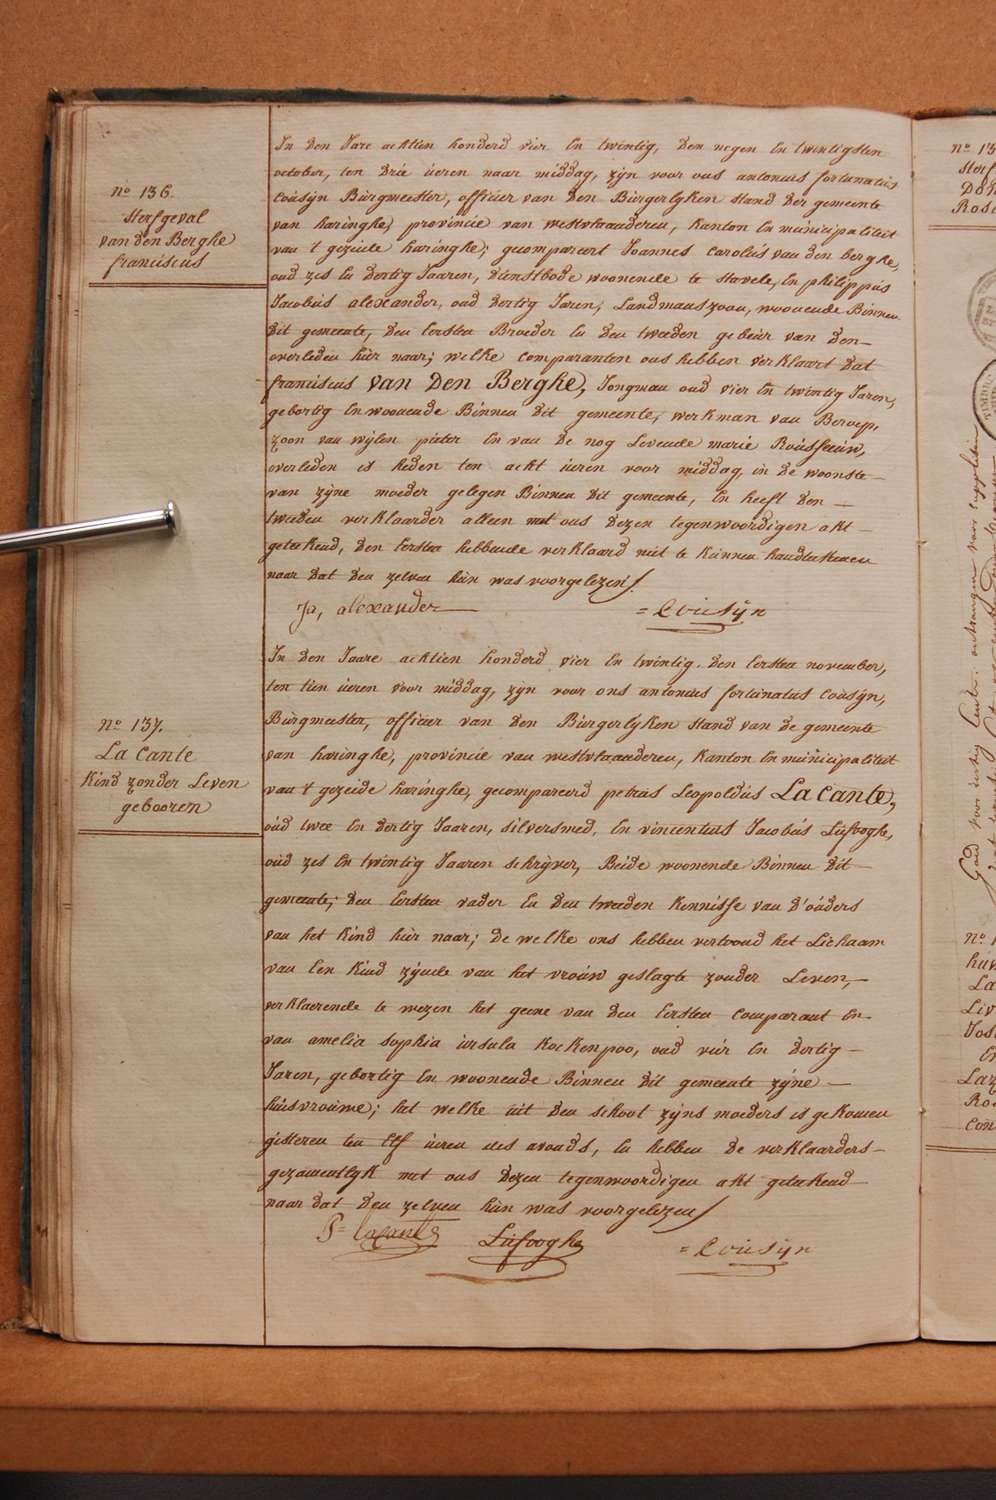 nº 136.
Sterfgeval
van den Berghe
franciscus
In den Jare achtien honderd vier En twintig, den negen En twintigsten
october, ten drie ueren naar middag, zijn voor ons antonius fortunatus
Cousijn Burgmeester, officier van den Burgerlyken stand der gemeente
van haringhe, provincie van westvlaanderen, Kanton En municipaliteit
van 't gezeide haringhe; gecompareert Joannes Carolus van den berghe,
oud zes En dertig Jaaren, dienstbode woonende te stavele, En philippus
Jacobus alexander, oud dertig Jaren, Landmanszoon, woonende Binnen
dit gemeente, den Eersten Broeder En den tweeden gebuer van den
overleden hier naar; welke comparanten ons hebben verklaart dat
franciscus van den Berghe, Jongman oud vier En twintig Jaren,
gebortig En woonende Binnen dit gemeente, werkman van Beroep,
zoon van wylen pieter En van de nog Levende marie Rousseeuw,
overleden is heden ten acht ueren voor middag, in de woonste
van zijne moeder gelegen Binnen dit gemeente, En heeft den
tweeden verklaarder alleen met ons dezen tegenwoordigen akt
geteekend, den Eersten hebbende verklaard niet te kunnen handteekenen
naar dat den zelven hun was voorgelezen/.
Ja, alexander = Cousijn
nº 137.
La Cante
Kind zonder Leven
gebooren
In den Jaare achtien honderd vier En twintig den Eersten november,
ten tien ueren voor middag, zijn voor ons antonius fortunatus Cousijn,
Burgmeester, officier van den Burgerlyken stand van de gemeente
van haringhe, provincie van westvlaanderen, Kanton En municipaliteit
van 't gezeide haringhe, gecompareerd petrus Leopoldus La Cante,
oud twee En dertig Jaaren, silversmed, En vincentius Jacobus Lufooghe,
oud zes En twintig Jaaren schrijver, Beide woonende Binnen dit
gemeente; den Eersten vader En den tweeden Kennisse van d'ouders
van het Kind hier naar; de welke ons hebben vertoond het Lichaam
van Een Kind zijnde van het vrouw geslagte zonder Leven,
verklaerende te wezen het geene van den Eersten comparant En
van amelia sophia ursula Kockenpoo, oud vier En dertig
Jaren, gebortig En woonende Binnen dit gemeente zijne
huisvrouwe; het welke uit den schoot zijns moeders is gekomen
gisteren ten Elf ueren des avonds, En hebben de verklaarders
gezamentlyk met ons dezen tegenwoordigen akt geteekend
naar dat den zelven hun was voorgelezen/
P= Lacante Lufooghe = Cousijn